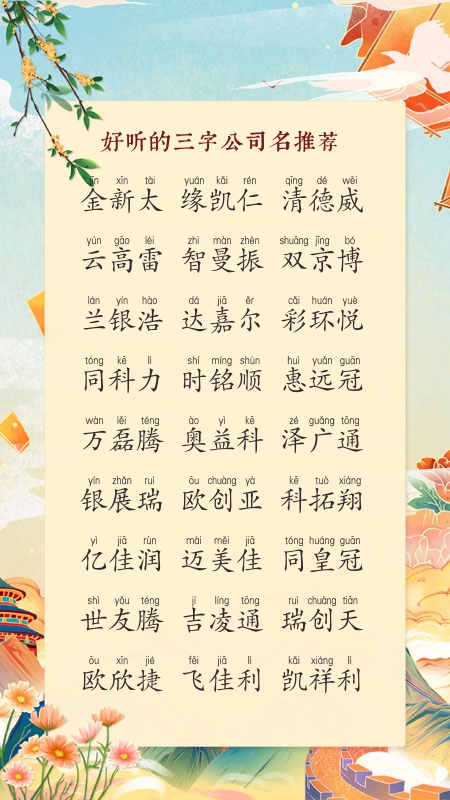 好听的三字公司名推荐
jīn xīn tài yuán kǎi rén qīng dé wēi
金新太 缘凯仁 清德威
yún gāo léi zhì màn zhèn shuāng jīng bó
云高雷 智曼振 双京博
lán yín hào dá jiā ěr cǎi huán yuè
兰银浩 达嘉尔 彩环悦
tóng kē lì shí míng shùn huì yuǎn guān
同科力 时铭顺 惠远冠
wàn lěi téng ào yì kē zé guǎng tōng
万磊腾 奥益科 泽广通
yín zhǎn ruì ōu chuàng yà kē tuò xiáng
银展瑞 欧创亚 科拓翔
yì jiā rùn mài měi jiā tóng huáng guān
亿佳润 迈美佳 同皇冠
shì yǒu téng jí líng tōng ruì chuàng tiān
世友腾 吉凌通 瑞创天
ōu xīn jié fēi jiā lì kǎi xiáng lì
欧欣捷 飞佳利 凯祥利